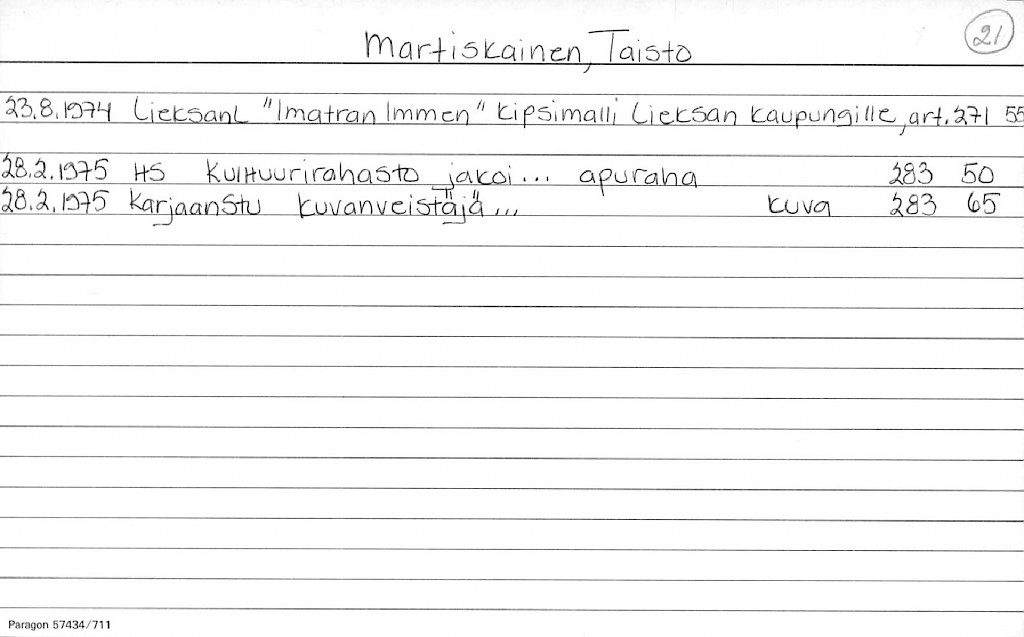 21
Martiskainen, Taisto
23.8.1974 LieksanL "Imatran Immen" kipsimalli Lieksan kaupungille, art. 271 55
28.2.1975 HS Kulttuurirahasto jakoi... apuraha 283 50
28.2.1975 KarjaanStu kuvanveistäjä... kuva 283 65
Paragon 57434/711